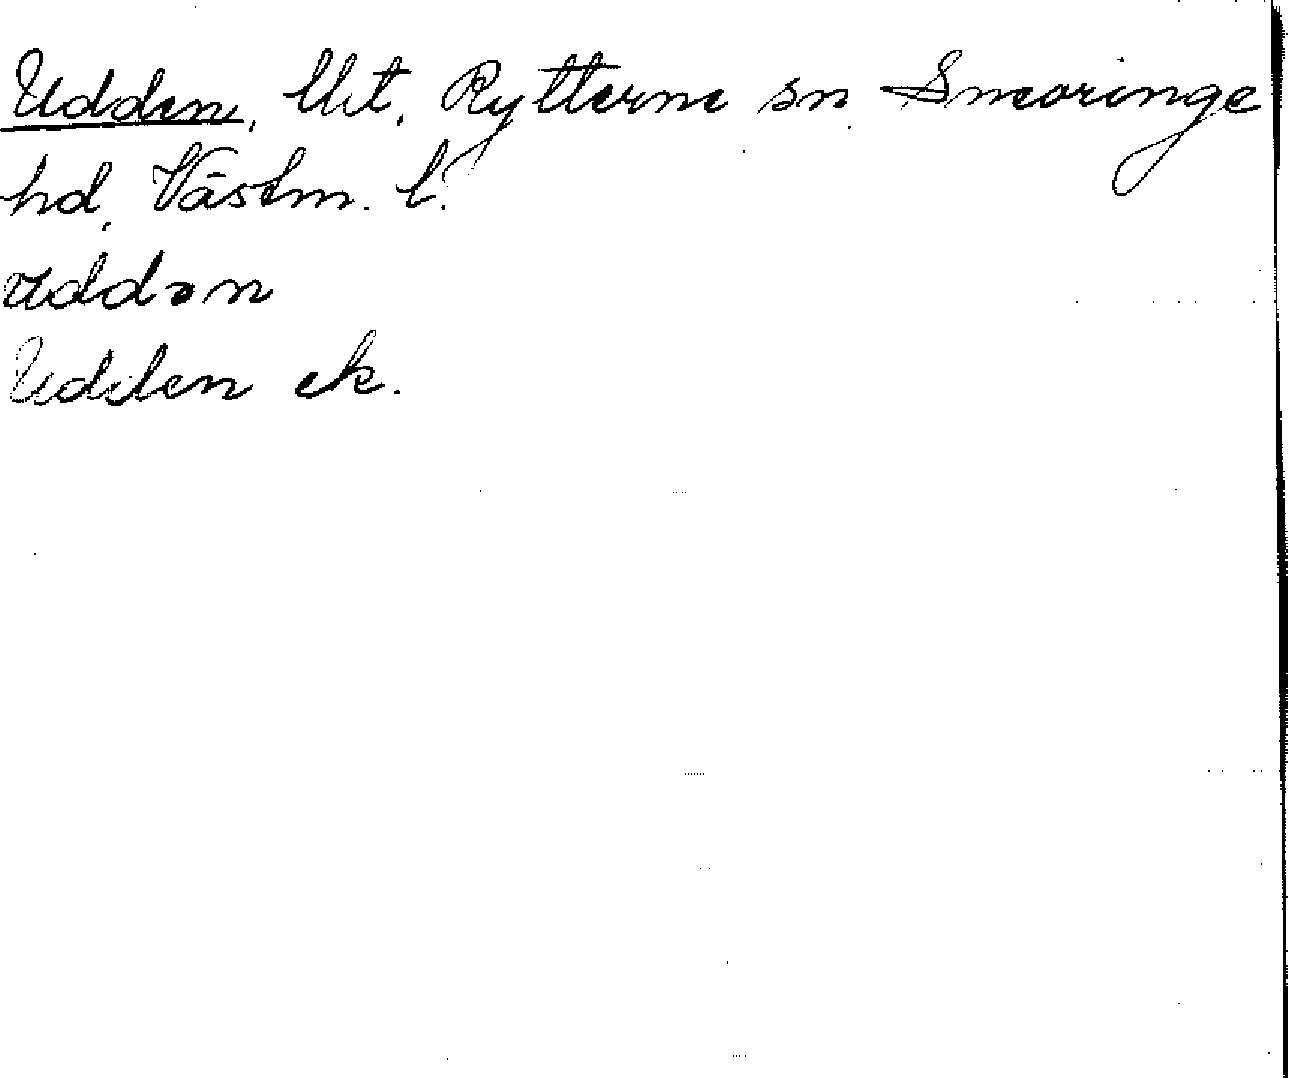 Udden, lht, Rytterne sn Snevringe
hd, Västm. l.
uddən
Udden ek.